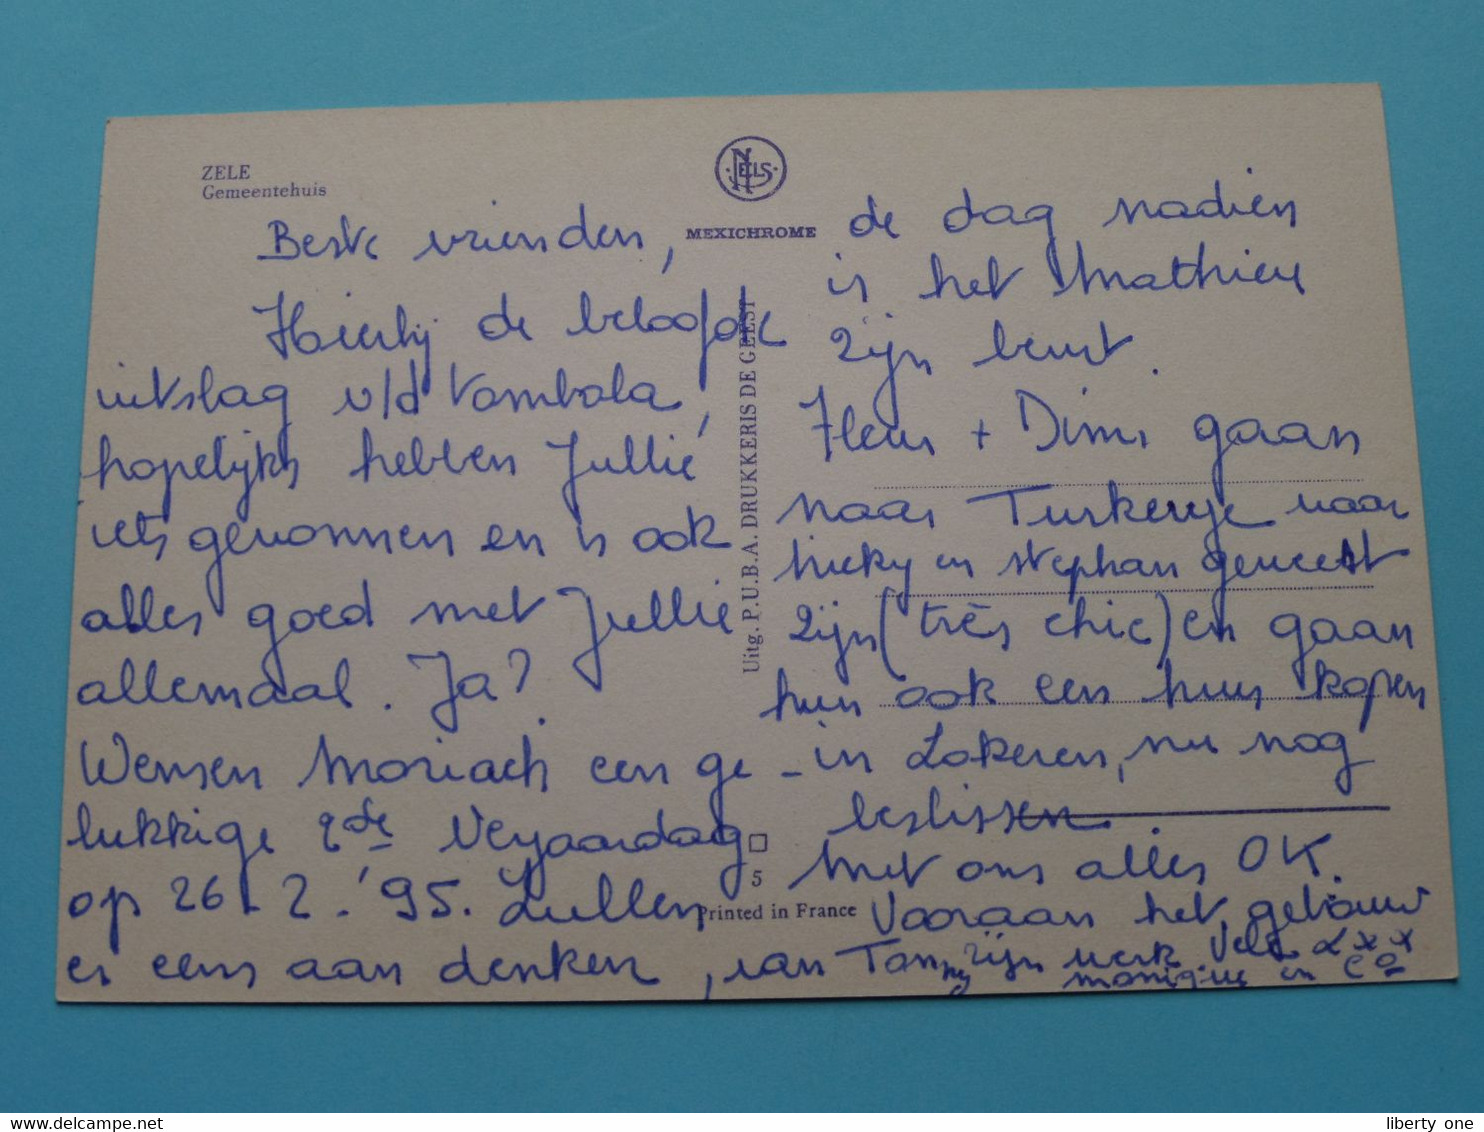 ZELE
Gemeentehuis
NELS
MEXICHROME
Beste vrienden,
Hierbij de beloofde
uitslag v/d tombola,
hopelijks hebben Jullie
iets gewonnen en is ook
alles goed met Jullie
allemaal. Ja?
Wensen Moriach een ge-
lukkige 2de Verjaardag
op 26-2-'95. Zullen
er eens aan denken,
de dag nadien
is het Mathieu
zijn beurt.
Fleur + Dimi gaan
naar Turkerye naar
Nicky en Stephan geweest
zijn (très chic) en gaan
hun ook een huis kopen
in Lokeren, nu nog
beslissen.
Met ons alles OK.
Vooraan het gebouw
van Tanny zijn werk Vele L x x x
Monique en Co
Uitg. P.U.B.A. DRUKKERIS DE GEEST
5
Printed in France
liberty one